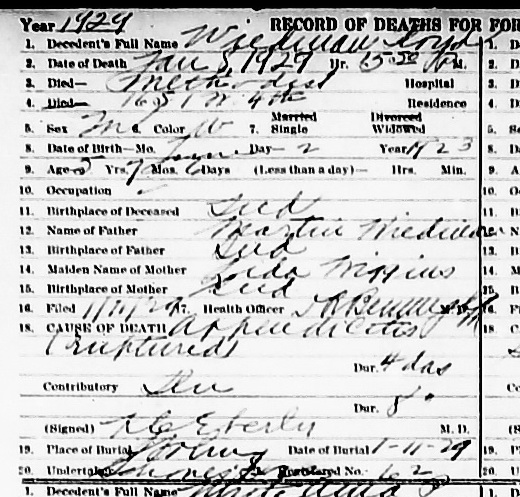 Year 1929 RECORD OF DEATHS FOR FOR
1. Decedent's Full Name Wiedman Loyd
2. Date of Death Jan 8, 1929 Hr. M.
3. Died— Methodist Hospital
4. Died— 1605 N 4th Residence
Married Divorced
5. Sex M 6. Color W 7. Single Widowed
8. Date of Birth—Mo. June Day— 2 Year 1923
9. Age— 5 Yrs. 7 Mos. 6 Days (Less than a day)— Hrs. Min.
10. Occupation
11. Birthplace of Deceased Ind
12. Name of Father Martin Wiedman
13. Birthplace of Father Ind
14. Maiden Name of Mother Lida Wiggins
15. Birthplace of Mother Ind
16. Filed 17. Health Officer M. D.
18. CAUSE OF DEATH Appendicitis
(ruptured)
Dur. 4 das
Contributory Flu
Dur. 8 "
(Signed) Eberly M. D.
19. Place of Burial Date of Burial 1-11-29
20. Undertaker 21. Registered No. 62
1. Decedent's Full Name